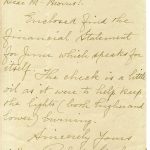 Dear Mr. Brown:
Enclosed find the
Financial Statement
for June which speaks for
itself. The check is a little
oil as it were to help keep
the lights (both higher and
lower) burning.
Sincerely Yours